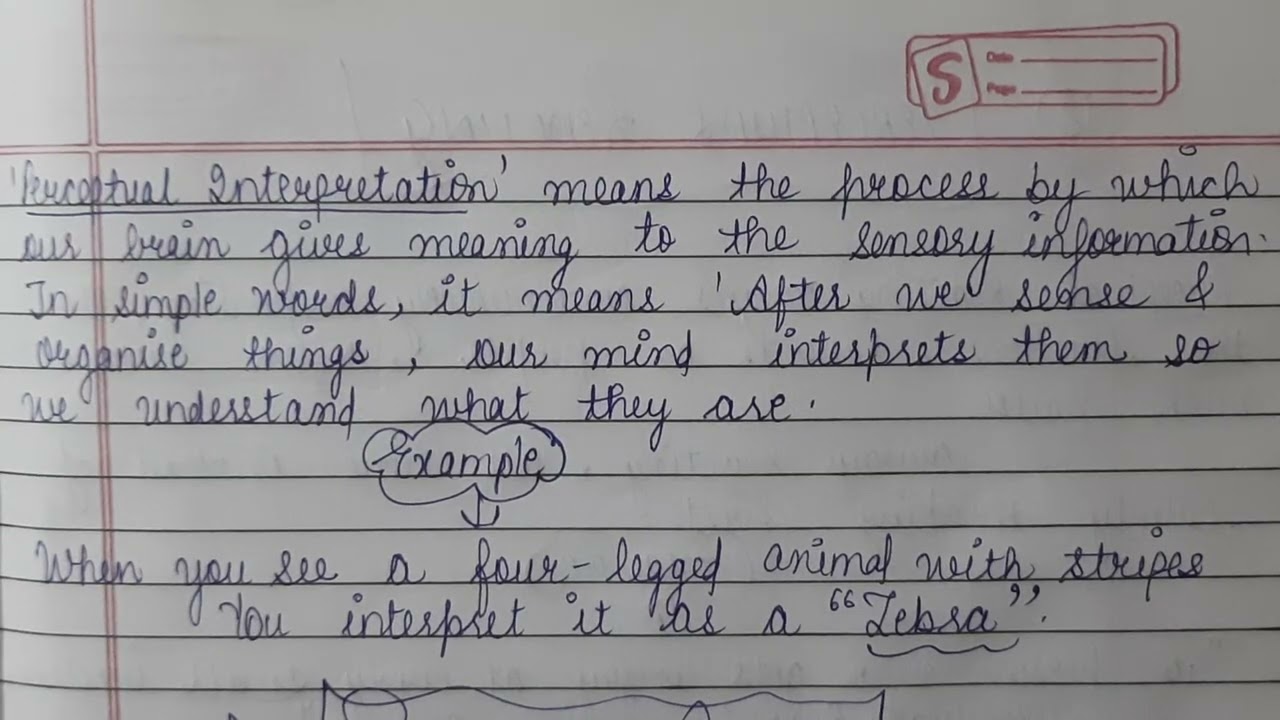 S
Date
Page
'Perceptual Interpretation' means the process by which
our brain gives meaning to the sensory information.
In simple words, it means 'After we sense &
organise things, our mind interprets them so
we understand what they are.
Example
When you see a four-legged animal with stripes
You interpret it as a “Zebra”.